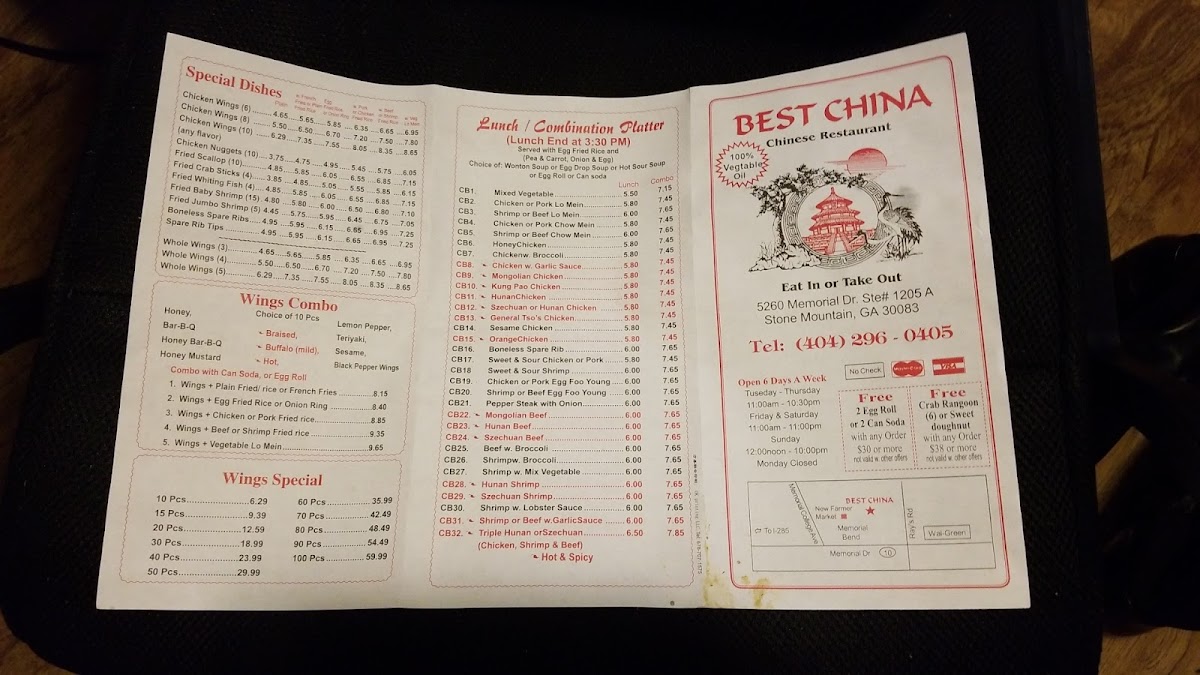 Special Dishes
Plain
w. French Fries or Plain Fried Rice
Egg Fried Rice or Onion Ring
w. Pork or Chicken Fried Rice
w. Beef or Shrimp Fried Rice
w. Veg Lo Mein
Chicken Wings (6) 4.65 5.65 5.85 6.35 6.65 6.95
Chicken Wings (8) 5.50 6.50 6.70 7.20 7.50 7.80
Chicken Wings (10) 6.29 7.35 7.55 8.05 8.35 8.65
(any flavor)
Chicken Nuggets (10) 3.75 4.75 4.95 5.45 5.75 6.05
Fried Scallop (10) 4.85 5.85 6.05 6.55 6.85 7.15
Fried Crab Sticks (4) 3.85 4.85 5.05 5.55 5.85 6.15
Fried Whiting Fish (4) 4.85 5.85 6.05 6.55 6.85 7.15
Fried Baby Shrimp (15) 4.80 5.80 6.00 6.50 6.80 7.10
Fried Jumbo Shrimp (5) 4.45 5.75 5.95 6.45 6.75 7.05
Boneless Spare Ribs 4.95 5.95 6.15 6.65 6.95 7.25
Spare Rib Tips 4.95 5.95 6.15 6.65 6.95 7.25
Whole Wings (3) 4.65 5.65 5.85 6.35 6.65 6.95
Whole Wings (4) 5.50 6.50 6.70 7.20 7.50 7.80
Whole Wings (5) 6.29 7.35 7.55 8.05 8.35 8.65
Wings Combo
Choice of 10 Pcs
Honey,
Bar-B-Q
Honey Bar-B-Q
Honey Mustard
Braised,
Buffalo (mild),
Hot,
Lemon Pepper,
Teriyaki,
Sesame,
Black Pepper Wings
Combo with Can Soda, or Egg Roll
1. Wings + Plain Fried/ rice or French Fries 8.15
2. Wings + Egg Fried Rice or Onion Ring 8.40
3. Wings + Chicken or Pork Fried rice 8.85
4. Wings + Beef or Shrimp Fried rice 9.35
5. Wings + Vegetable Lo Mein 9.65
Wings Special
10 Pcs 6.29
15 Pcs 9.39
20 Pcs 12.59
30 Pcs 18.99
40 Pcs 23.99
50 Pcs 29.99
60 Pcs 35.99
70 Pcs 42.49
80 Pcs 48.49
90 Pcs 54.49
100 Pcs 59.99
Lunch / Combination Platter
(Lunch End at 3:30 PM)
Served with Egg Fried Rice and
(Pea & Carrot, Onion & Egg)
Choice of: Wonton Soup or Egg Drop Soup or Hot Sour Soup
or Egg Roll or Can soda
Lunch Combo
CB1. Mixed Vegetable 5.50 7.15
CB2. Chicken or Pork Lo Mein 5.80 7.45
CB3. Shrimp or Beef Lo Mein 6.00 7.65
CB4. Chicken or Pork Chow Mein 5.80 7.45
CB5. Shrimp or Beef Chow Mein 6.00 7.65
CB6. HoneyChicken 5.80 7.45
CB7. Chickenw. Broccoli 5.80 7.45
CB8. Chicken w. Garlic Sauce 5.80 7.45
CB9. Mongolian Chicken 5.80 7.45
CB10. Kung Pao Chicken 5.80 7.45
CB11. HunanChicken 5.80 7.45
CB12. Szechuan or Hunan Chicken 5.80 7.45
CB13. General Tso's Chicken 5.80 7.45
CB14. Sesame Chicken 5.80 7.45
CB15. OrangeChicken 5.80 7.45
CB16. Boneless Spare Rib 6.00 7.65
CB17. Sweet & Sour Chicken or Pork 5.80 7.45
CB18 Sweet & Sour Shrimp 6.00 7.65
CB19. Chicken or Pork Egg Foo Young 6.00 7.65
CB20. Shrimp or Beef Egg Foo Young 6.00 7.65
CB21. Pepper Steak with Onion 6.00 7.65
CB22. Mongolian Beef 6.00 7.65
CB23. Hunan Beef 6.00 7.65
CB24. Szechuan Beef 6.00 7.65
CB25. Beef w. Broccoli 6.00 7.65
CB26. Shrimpw. Broccoli 6.00 7.65
CB27. Shrimp w. Mix Vegetable 6.00 7.65
CB28. Hunan Shrimp 6.00 7.65
CB29. Szechuan Shrimp 6.00 7.65
CB30. Shrimp w. Lobster Sauce 6.00 7.65
CB31. Shrimp or Beef w.GarlicSauce 6.00 7.65
CB32. Triple Hunan orSzechuan 6.50 7.85
(Chicken, Shrimp & Beef)
Hot & Spicy
BEST CHINA
Chinese Restaurant
100%
Vegtable
Oil
Eat In or Take Out
5260 Memorial Dr. Ste# 1205 A
Stone Mountain, GA 30083
Tel: (404) 296 - 0405
No Check
MasterCard
VISA
Open 6 Days A Week
Tuseday - Thursday
11:00am - 10:30pm
Friday & Saturday
11:00am - 11:00pm
Sunday
12:00noon - 10:00pm
Monday Closed
Free
2 Egg Roll
or 2 Can Soda
with any Order
$30 or more
not valid w. other offers
Free
Crab Rangoon
(6) or Sweet
doughnut
with any Order
$38 or more
not valid w. other offers
BEST CHINA
Now Farmer
Market
Memorial College Ave
To I-285
Memorial
Bend
Ray's Rd
Wal-Green
Memorial Dr
10